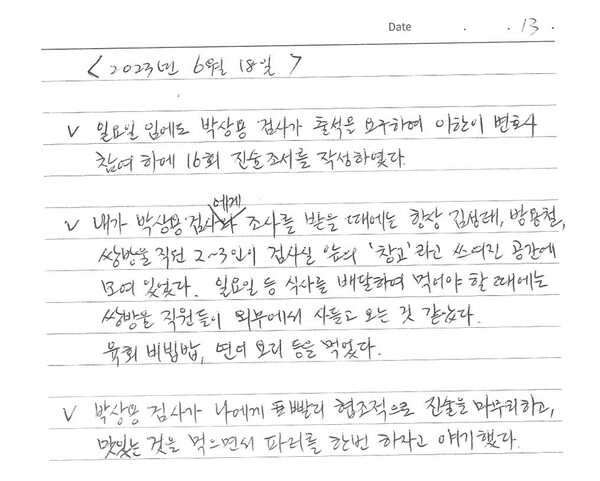 Date . . 13 .
< 2023년 6월 18일 >
∨ 일요일 임에도 박상용 검사가 출석을 요구하여 이한이 변호사
참여 하에 16회 진술조서를 작성하였다.
에게
∨ 내가 박상용 검사 조사를 받을 때에는 항상 김성태, 방용철,
쌍방울 직원 2~3인이 검사실 앞의 '창고'라고 쓰여진 공간에
모여 있었다. 일요일 등 식사를 배달하여 먹어야 할 때에는
쌍방울 직원들이 외부에서 사들고 오는 것 같았다.
육회 비빔밥, 연어 요리 등을 먹었다.
∨ 박상용 검사가 나에게 빨리 협조적으로 진술을 마무리하고,
맛있는 것을 먹으면서 파티를 한번 하자고 얘기했다.